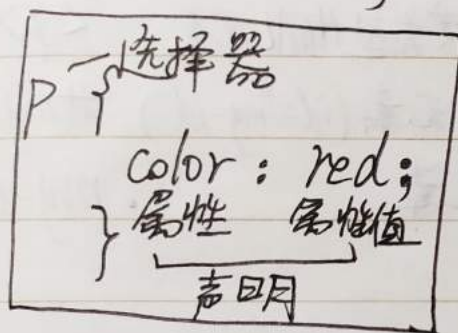 p{ 选择器
color: red;
} 属性 属性值
声明